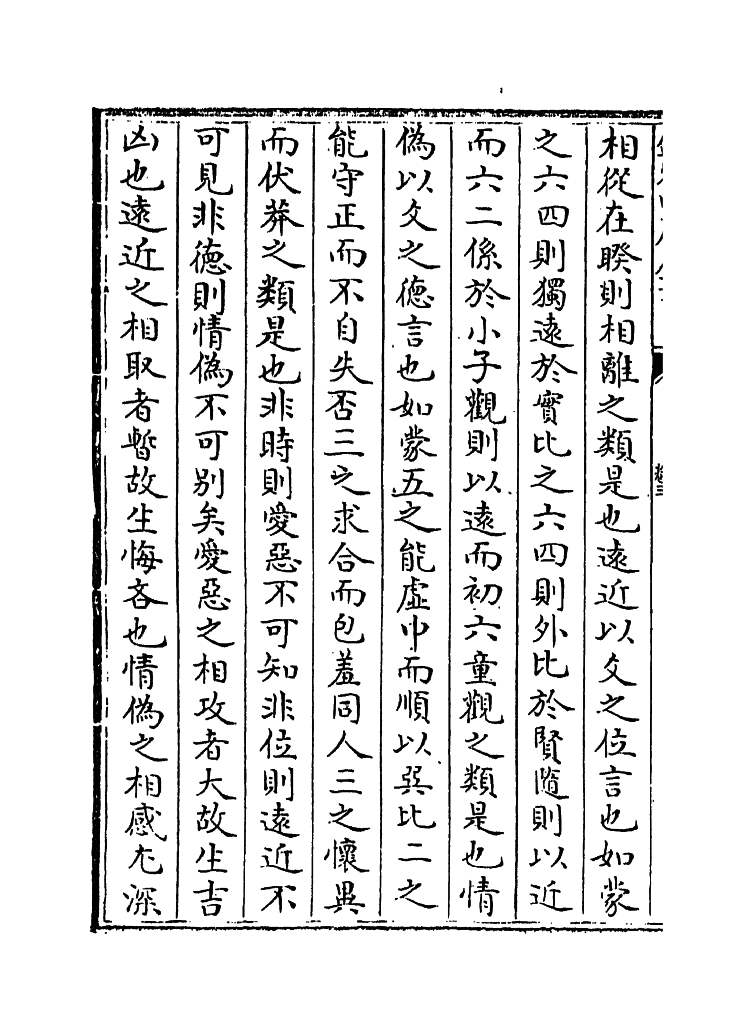 相從在睽則相離之類是也遠近以爻之位言也如蒙
之六四則獨遠於實比之六四則外比於賢隨則以近
而六二係於小子觀則以遠而初六童觀之類是也情
偽以爻之德言也如蒙五之能虛中而順以巽比二之
能守正而不自失否三之求合而包羞同人三之懷異
而伏莽之類是也非時則愛惡不可知非位則遠近不
可見非德則情偽不可別矣愛惡之相攻者大故生吉
凶也遠近之相取者暫故生悔吝也情偽之相感尤深